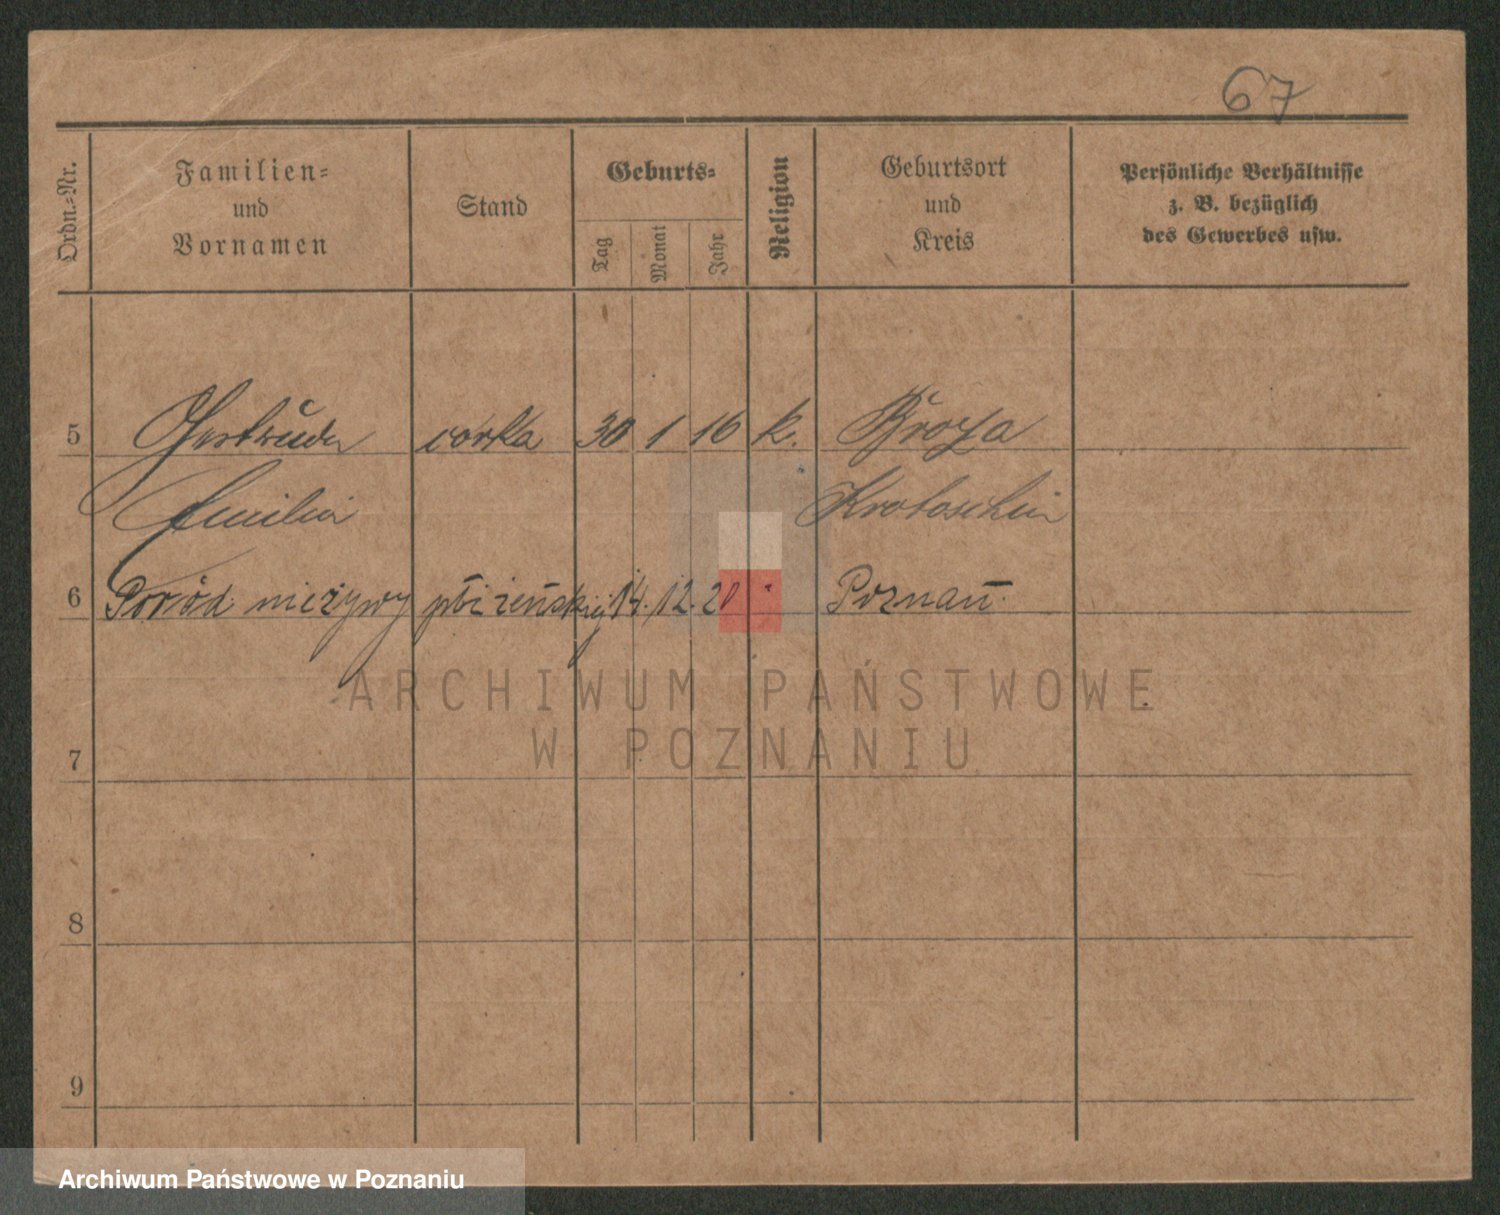 67
Ordn.-Nr.
Familien-
und
Vornamen
Stand
Geburts-
Tag
Monat
Jahr
Religion
Geburtsort
und
Kreis
Persönliche Verhältnisse
z. B. bezüglich
des Gewerbes usw.
5 Gertruda corka 30 1 16 k.
Emilia Krotoschin
6 Poród nieżywy płci żeńskiej 14. 12. 20 Poznań
7
8
9
ARCHIWUM PAŃSTWOWE
W POZNANIU
Archiwum Państwowe w Poznaniu